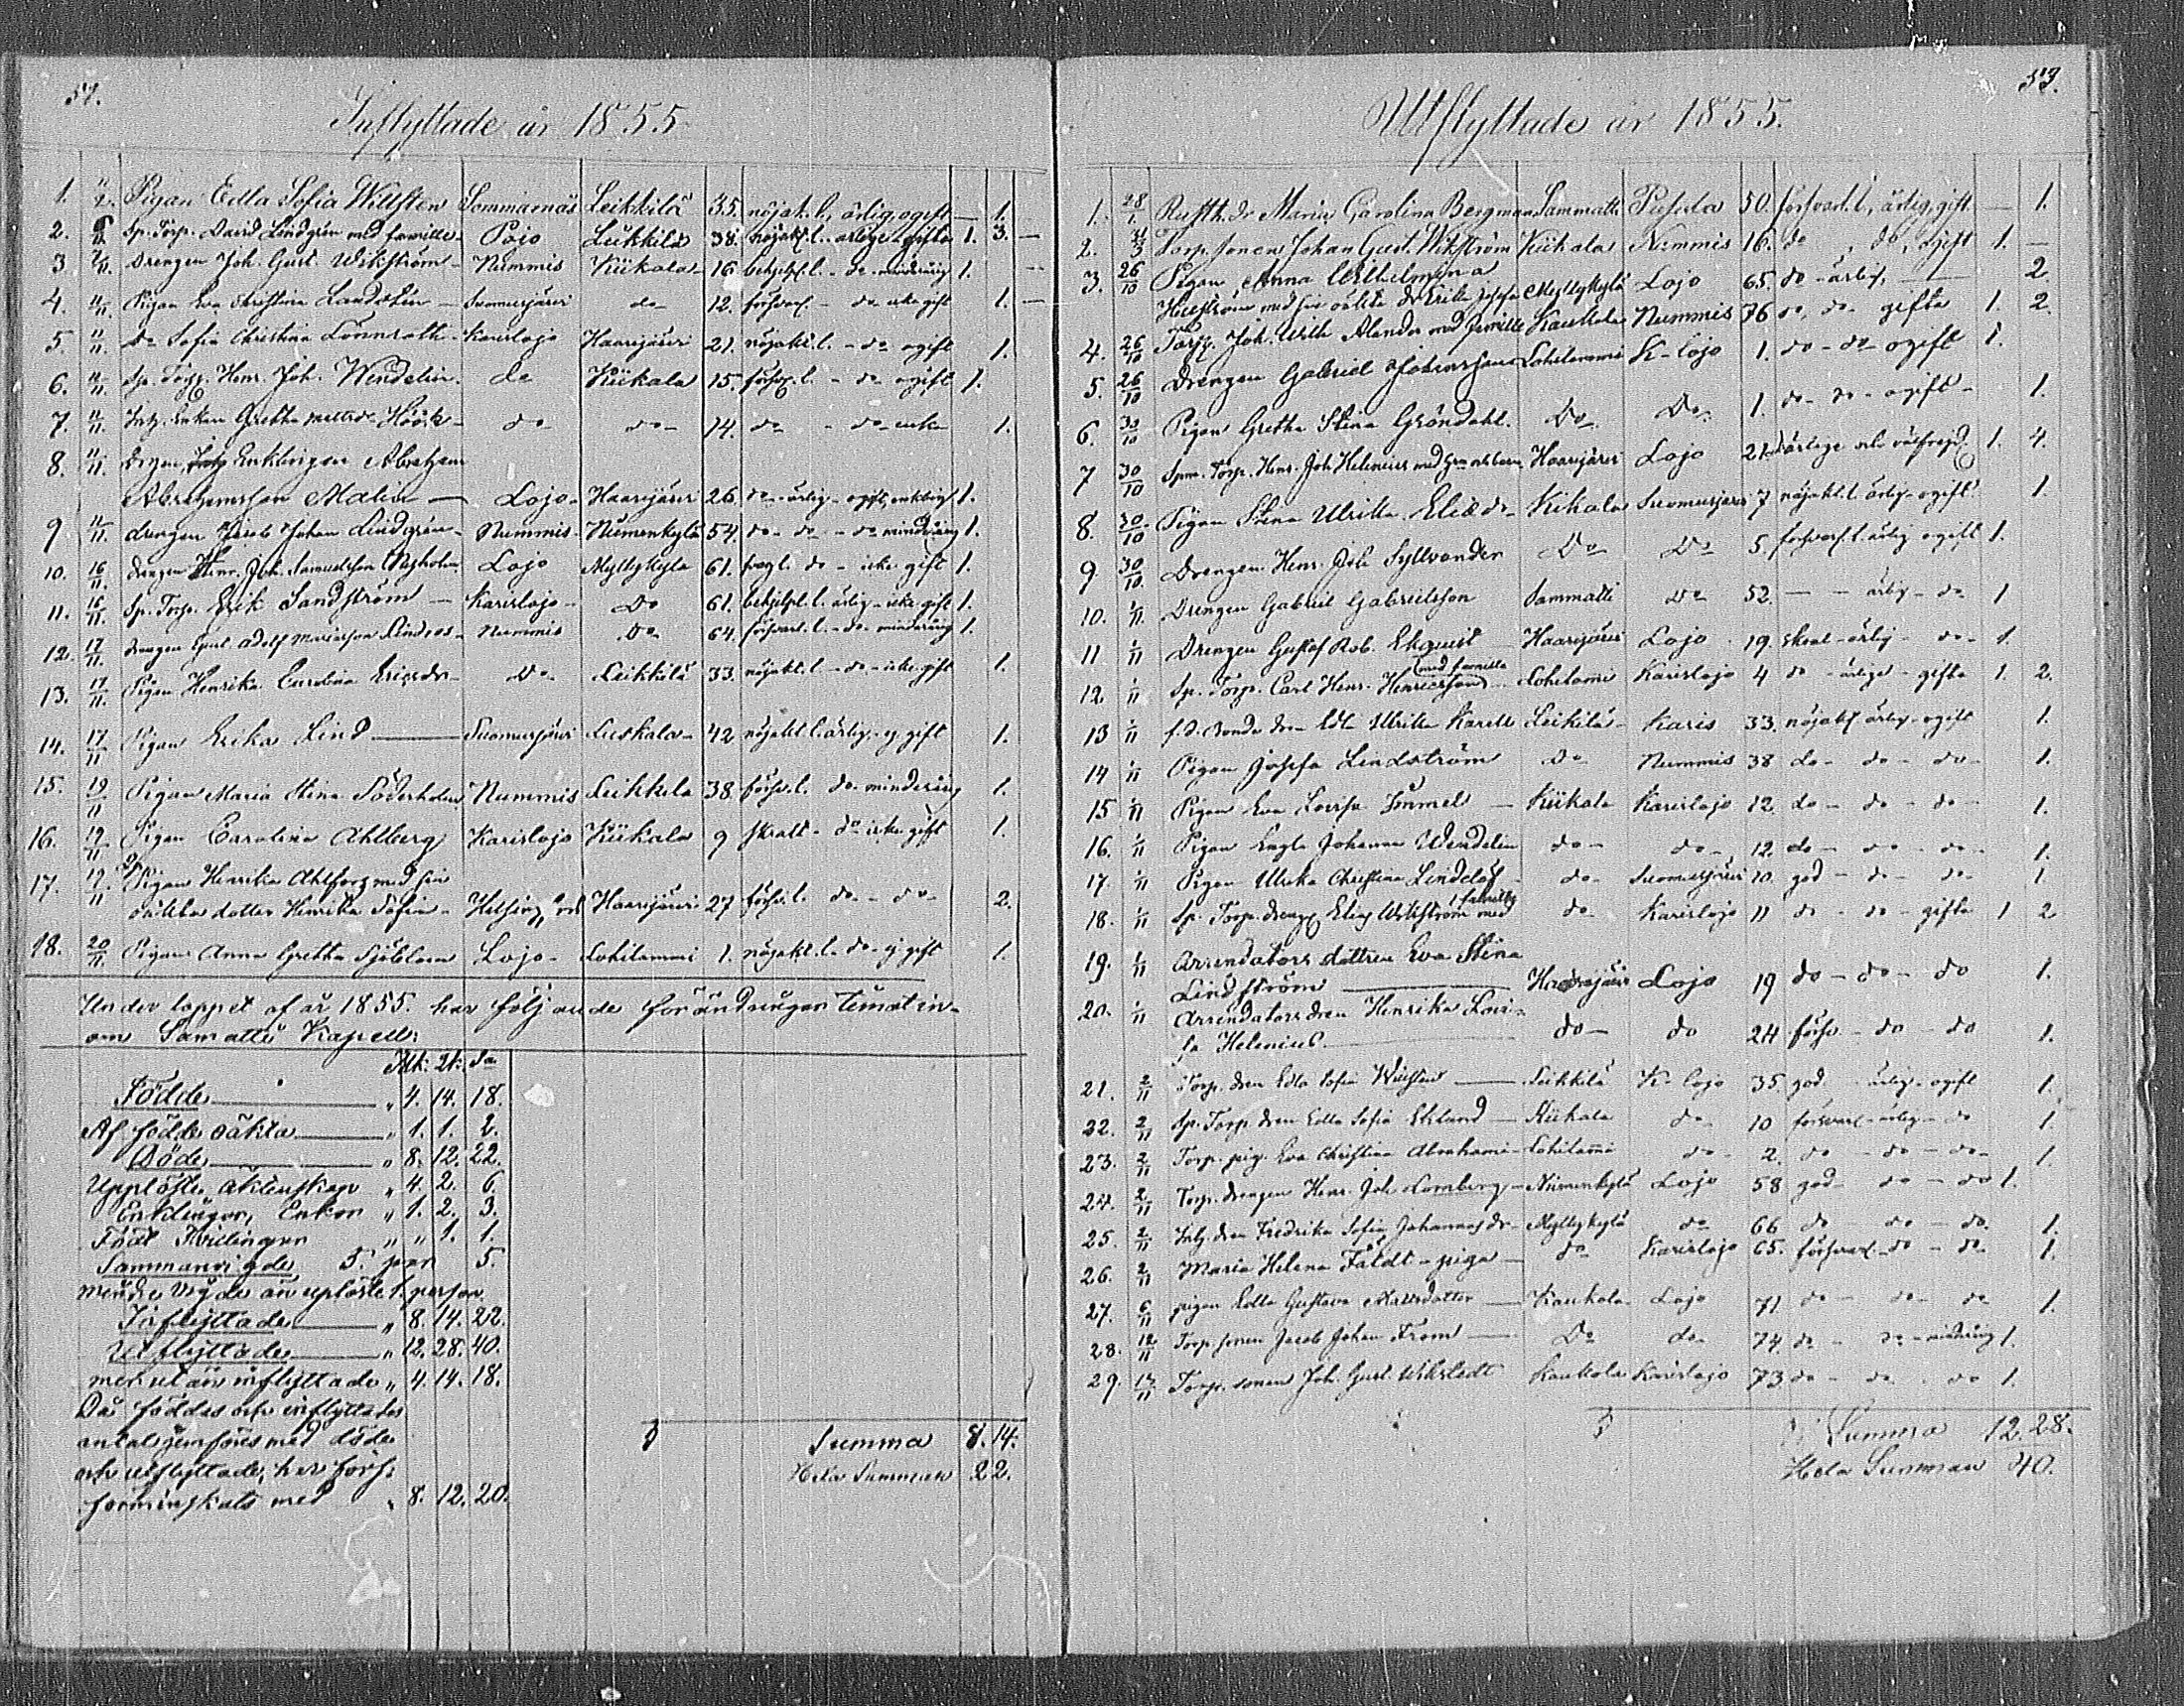 Inflyttade år 1855
1. Pigan Edla Sofia Sommarnäs Leikkilä 35. nöjakt. l., ärlig, ogift — 1.
2. Sp. Torp. David Lindgrén med familie Pojo Leikkilä 38. nöjakt. l. ärlige gifta 1. 3.
3. 7/11. Drengen Joh. Gust. Wikström Nummis Kiikala 16 do 1.
4. Pigan Eva Christina Suomusjärvi do 12. försvarl. do icke gift 1.
5. 11/11. Do Sofia Christina Lönnroth Karislojo Haarijärvi 21. nöjakt. l. do ogift 1.
6. 11/11. Sp. Torp. Henr. Joh. Wendelin do Kiikala 15. l. do ogift 1.
7. 11/11. Enkan Gretha Höök do do 14. do do enka 1.
8. 11/11. Enklingen Abraham
Abrahamsson Malin — Lojo Haarijärvi 26 do ärlig 1.
9 11/11. drengen Jacob Johan Lindgrén Nummis Nümenkylä 54. do do do minderårig 1.
10. 16/11. drengen Henr. Joh. Samuelsson Lojo Myllykylä 61. do icke gift 1.
11. 16/11. Sp. Torp. Erik Sandström — Karislojo Do 61. l. ärlig icke gift 1.
12. 17/11. drengen Gust. Adolf Lindroos Nummis Do 64. försvarl. l. do minderårig 1.
13. 17/11. Pigan Henrika Carolina Ericsdr Do Leikkilä 33. nöjakt. l. do icke gift 1.
14. 17/11 Pigan Erika Lind — Suomusjärvi Luskala 42 nöjakt l. ärlig ej gift 1.
15. 19/11 Pigan Maria Stina Söderholm Nummis Leikkilä 38. försv. l. do minderårig 1.
16. 19/11 Pigan Carolina Ahlberg Karislojo Kiikala 9 do icke gift 1.
17. 19/11 Pigan Henrika Ahlfors med sin
oäkta dotter Henrika Sofia Haarijärvi 27 försv. l. do do 2.
18. 20/11. Pigan Anna Gretha Sjöblom Lojo Lohilammi 1. nöjakt. l. do ej gift 1.
Under loppet af år 1855. har följande förändringar timat in-
om Samatti Kapell:
Mk: Qk: Sa
Födde — „ 4. 14. 18.
Af födde oäkta — „ 1. 1. 2.
Döde — „ 8. 12. 22.
Upplöste äktenskap „ 4. 2. 6
Enklingar, Enkor „ 1. 2. 3.
Födt Tvillingar „ „ 1. 1.
Sammanvigde 5. par 5.
mindre vigde än uplöste 1. person.
Inflyttade — „ 8. 14. 22.
Utflyttade — „ 12. 28. 40.
mer ut än inflyttade „ 4. 14. 18.
Då föddes och inflyttades
antal jemföres med döde
och utflyttade, har förs:
förminskats med „ 8. 12. 20.
Summa 8. 14.
Hela Summan 22.
53.
Utflyttade år 1855.
1. 28/1. Rusth. dr Maria Carolina Bergman Sammatti Pusula 50. försvarl. l, ärlig, gift — 1.
2. Torp. sonen Johan Gust. Wikström Kiikala Nummis 16. do, do, ogift 1. —
3. 26/10 Pigan Anna Wilhelmina
med sin oäkta dr Myllykylä Lojo 65. do ärlig, — 2
4. 26/10 Torp. Joh. Wilh. Alander med familie Kaukola Nummis 76 do, do gifta 1. 2.
5. 26/10 Drengen Gabriel Johansson Lohilammi K-lojo 1. do do ogift 1.
6. 30/10 Pigan Gretha Stina Gröndahl. Do Do 1. do do ogift 1.
7 30/10 Torp. Henr. Joh Helenius med Haarijärvi Lojo 21 ärlige och välfrejd. 1. 4.
8. 30/10 Pigan Stina Ulrika Kiikala Suomusjärvi 7 nöjakt. l. ärlig ogift 1.
9. 30/10. Drengen Henr. Joh Syllvander Do Do 5. försvarl. l. ärlig ogift 1.
10. 1/11. Drengen Gabriel Gabrielsson Sammatti Do 52. — ärlig do 1
11 1/11 Drengen Gustaf Rob. Ekquist Haarijärvi Lojo 19. ärlig do 1.
12. 1/11 Sp. Torp. Carl Henr. Henricsson med familie Lohilammi Karislojo 4 do ärlige gifta 1. 2.
13 1/11 f.d. Bonde dr Ulrika Leikkilä Karis 33. nöjakt ärlig ogift 1.
14 1/11 Pigan Josefa Lindström Do Nummis 38 do do do 1.
15 1/11 Pigan Eva Lovisa — Kiikala Karislojo 12. do do do 1.
16. 1/11 Pigan Johanna Wendelin do do 12. do do do 1.
17. 1/11 Pigan Ulrika Christina Lindelöf do Suomusjärvi 10. god do do 1
18. 1/11 Sp. Torp. dreng Elias Wikström med familie do Karislojo 11 do do gifta 1 2
19. 1/11 Arrendators dottren Eva Stina
Lindström — Haarijärvi Lojo 19 do do do 1.
20. 1/11 Arrendators dren Henrika Lovi-
sa Helenius do do 24 försv. do do 1.
21. 2/11 Torp. dren Edla Sofia — Leikkilä K. lojo 35 god ärlig ogift 1.
22. 2/11 Sp. Torp dren Edla Sofia Eklund — Kiikala do 10 försvarl. ärlig do 1
23. 2/11 Torp. pig. Eva Christina Lohilammi do 2. do do do 1.
24. 2/11 Torp. drengen Henr. Joh Lomberg Nümenkylä Lojo 58 god do do 1.
25. 2/11 dren Fredrika Sofia Johannesdr Myllykylä do 66 do do do. 1.
26. 2/11 Maria Helena Fäldt piga — do Karislojo 65. försvarl. do do 1.
27. 6/11 pigan Edla Gustava Mattsdotter — Kaukola Lojo 71 do do do 1.
28. 12/11 Torp. sonen Jacob Johan From — Do do 74. do do 1.
29. 12/11 Torp. sonen Joh. Gust. Wikstedt Kaukola Karislojo 73 do do do 1.
Summa 12. 28.
Hela Summan 40.